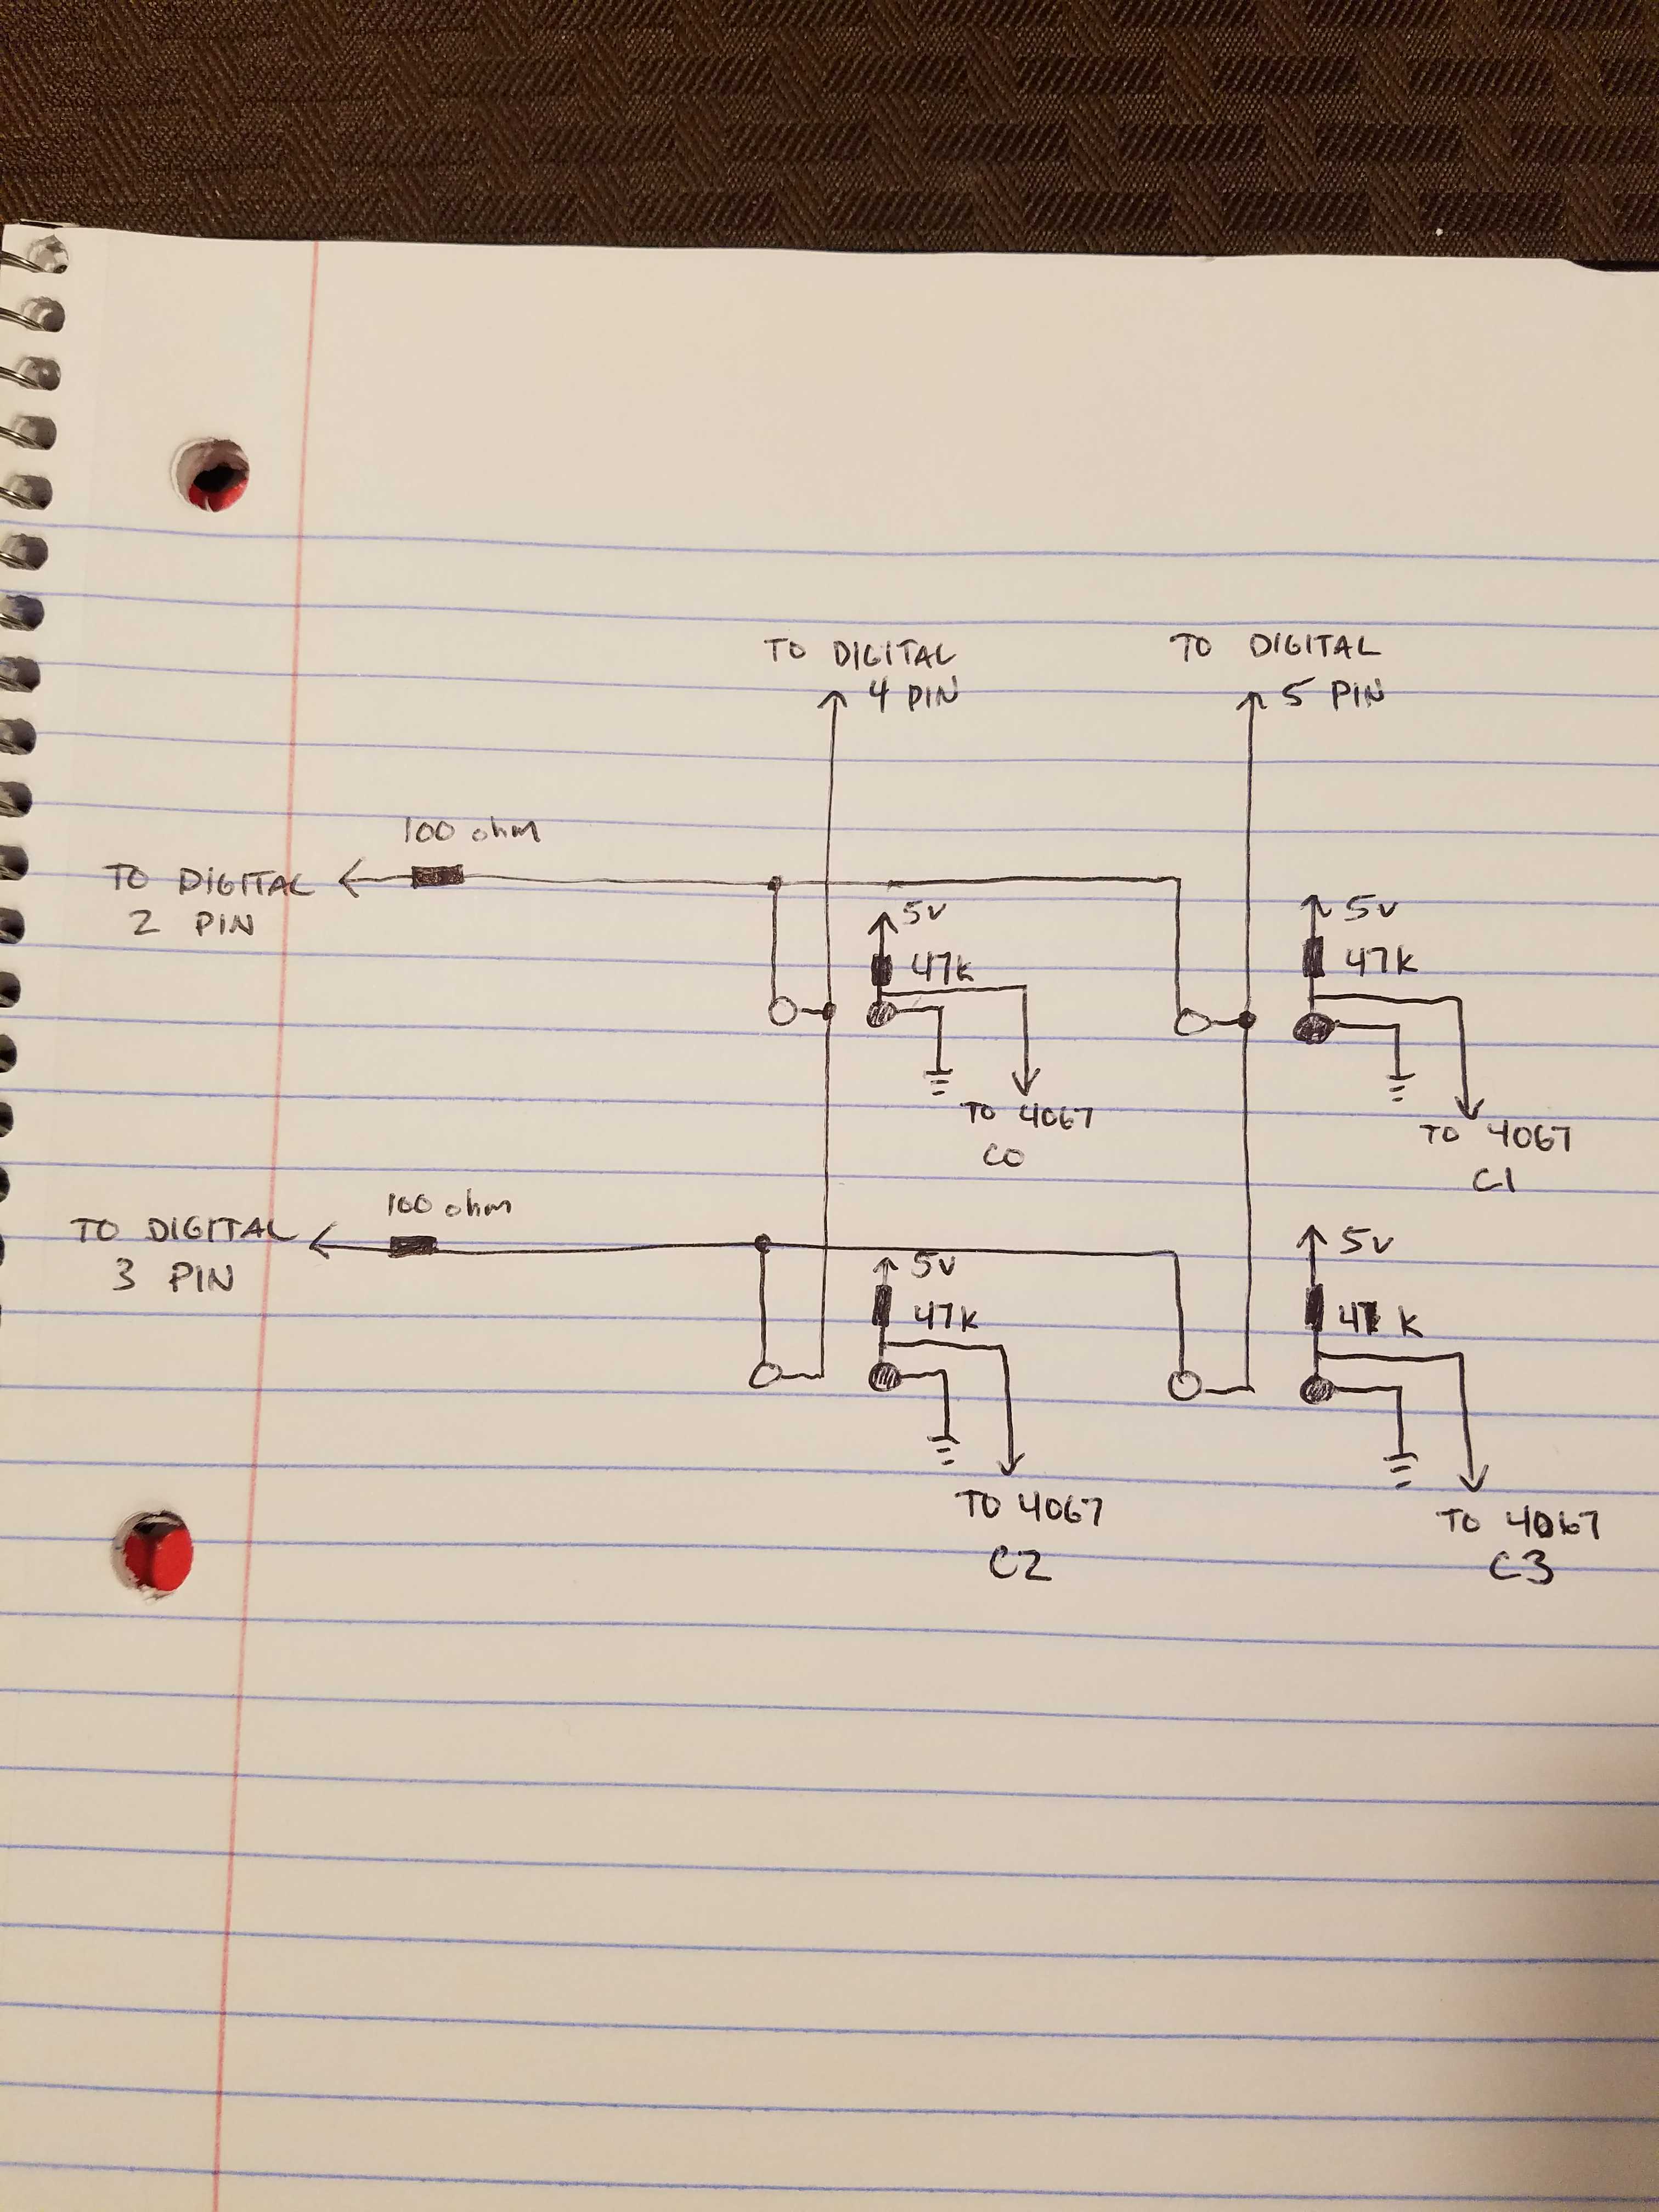 TO DIGITAL
4 PIN
TO DIGITAL
5 PIN
100 ohm
TO DIGITAL
2 PIN
5v
47k
5v
47k
TO 4067
C0
TO 4067
C1
100 ohm
TO DIGITAL
3 PIN
5v
47k
5v
47 k
TO 4067
C2
TO 4067
C3